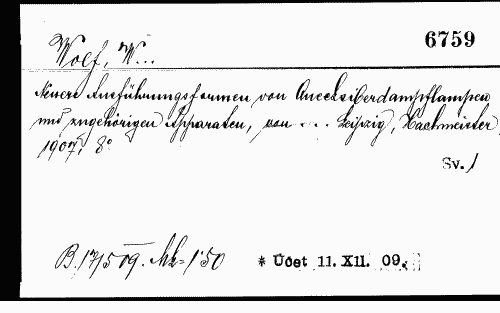 6759
Wolf, W...
Neuere Ausführungsformen von Quecksilberdampflampen
und zugehörigen Apparaten, von ... Leipzig, Hachmeister,
1907, 8°
Sv. 1
B. 171509. Mk 1·50
* Ucet 11. XII. 09.